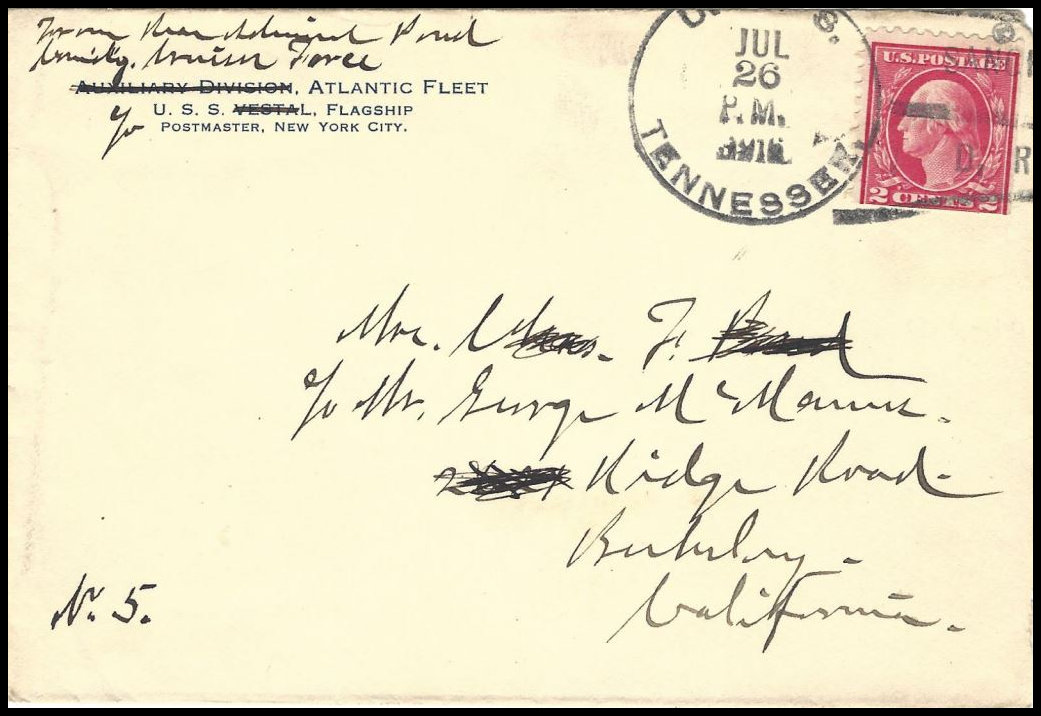 From Rear Admiral Pond
Comdg. Cruiser Force
AUXILIARY DIVISION, ATLANTIC FLEET
U. S. S. VESTAL, FLAGSHIP
c/o POSTMASTER, NEW YORK CITY.
U. S. S.
JUL
26
P.M.
1916
TENNESSEE
U.S. POSTAGE
2 CENTS 2
D. R
Mrs. Chas. F. Pond
c/o Mr. George McManus.
Ridge Road.
Berkeley.
California.
No. 5.